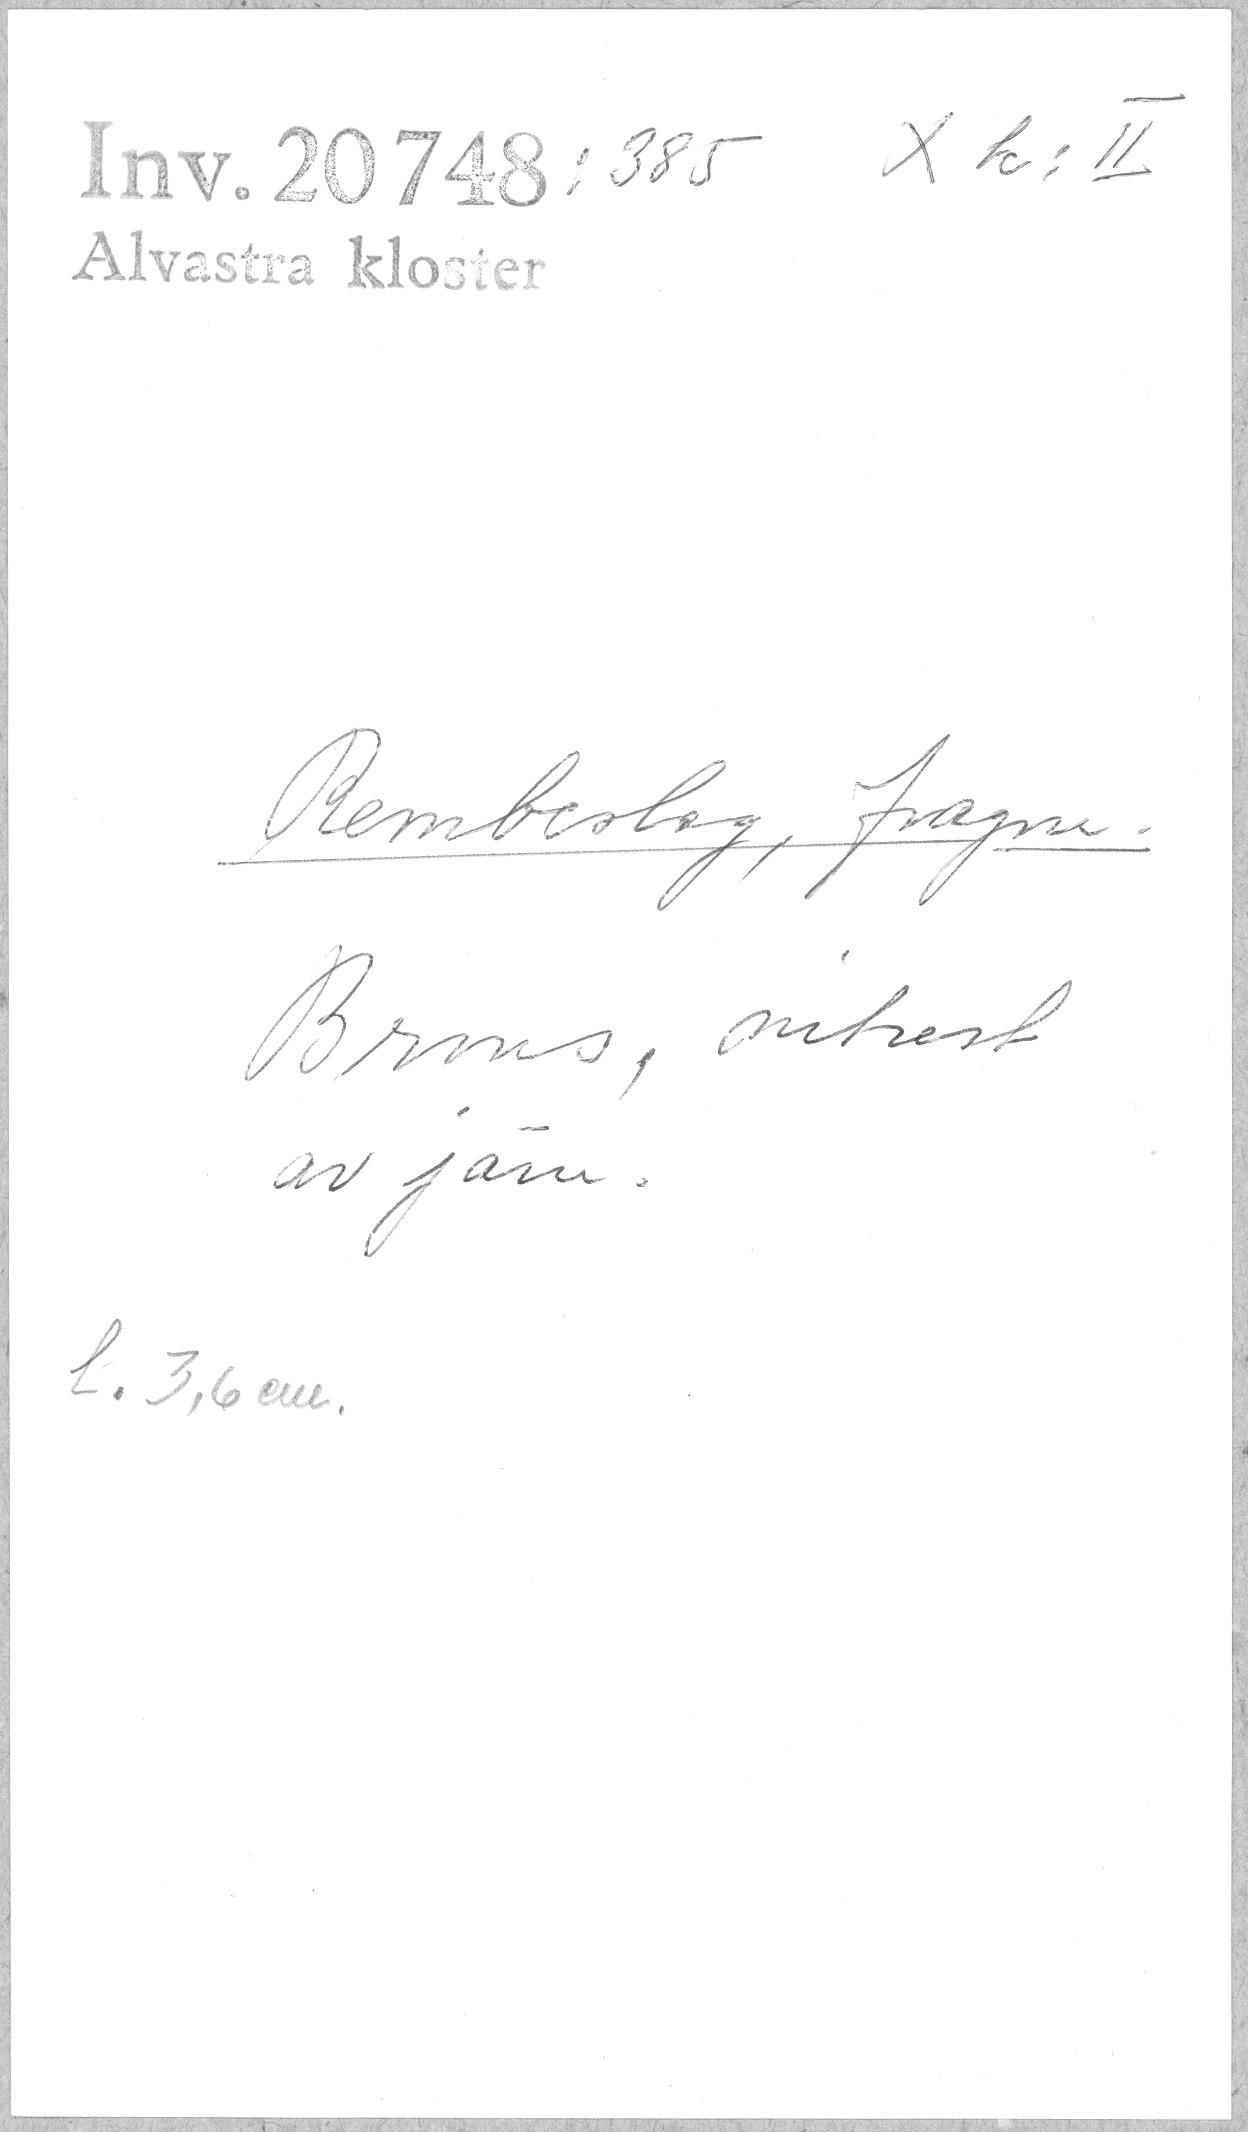 Inv. 20748:385 X k:II
Alvastra kloster
Rembeslag, fragm.
Brons, nitrest
av järn.
L. 3,6 cm.